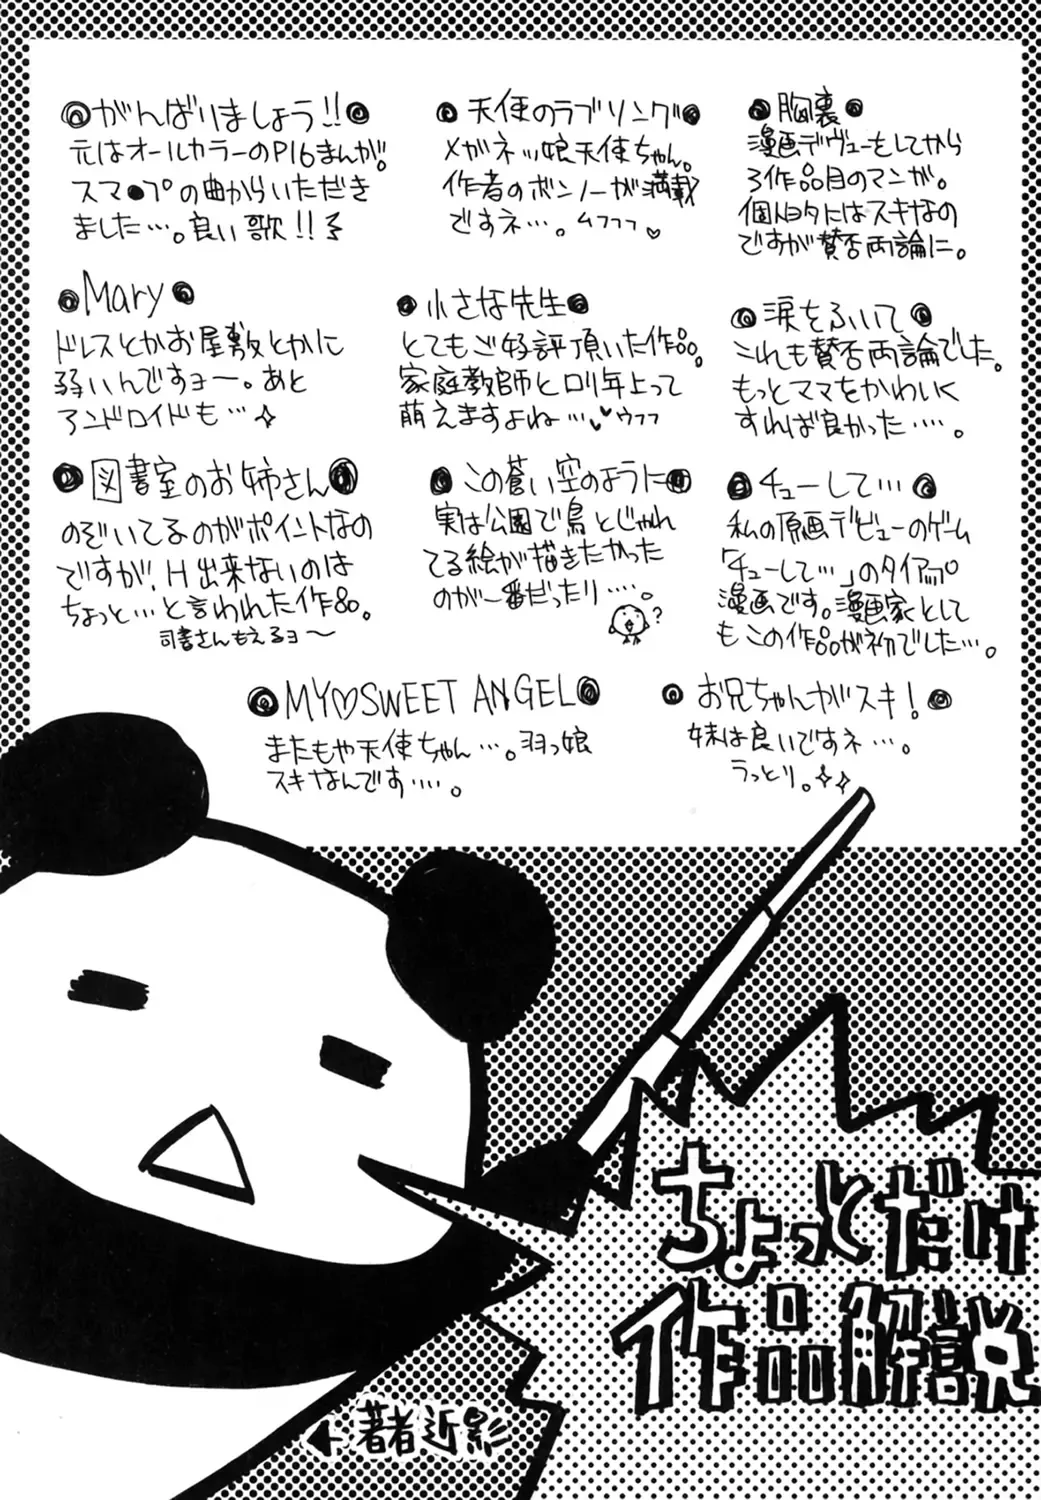 胸裏
漫画デヴューをしてから
3作品目のマンガ。
個人的にはスキなの
ですが賛否両論に。
天使のラブソング
メガネッ娘天使ちゃん。
作者のボンノーが満載
ですネ…。ムフフフ♡
がんばりましょう!!
元はオールカラーのP16まんが。
スマ●プの曲からいただき
ました…。良い歌!!
涙をふいて
これも賛否両論でした。
もっとママをかわいく
すれば良かった……。
小さな先生
とてもご好評頂いた作品。
家庭教師とロリ年上って
萌えますよね…♥ウフフ
Mary
ドレスとかお屋敷とかに
弱いんですヨー。あと
アンドロイドも…✧
チューして…
私の原画デビューのゲーム
「チューして…」のタイアップ
漫画です。漫画家として
もこの作品が初でした…。
この蒼い空のように
実は公園で鳥とじゃれ
てる絵が描きたかった
のが一番だったり……
?
図書室のお姉さん
のぞいてるのがポイントなの
ですが、H出来ないのは
ちょっと…と言われた作品。
司書さんもえるヨ〜
お兄ちゃんがスキ!
妹は良いですネ…。
うっとり。✧✧
MY♡SWEET ANGEL
またもや天使ちゃん…。羽っ娘
スキなんです……。
ちょっとだけ
作品解説
← 著者近影